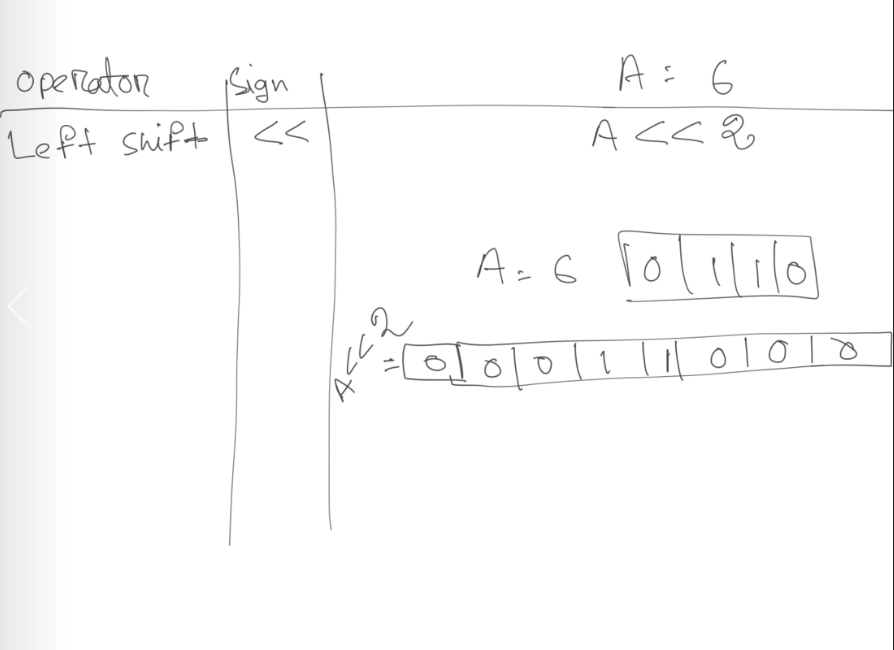 Operator | Sign | A = 6
Left shift | << | A << 2
A = 6 | 0 | 1 | 1 | 0 |
A<<2 = | 0 | 0 | 0 | 1 | 1 | 0 | 0 | 0 |